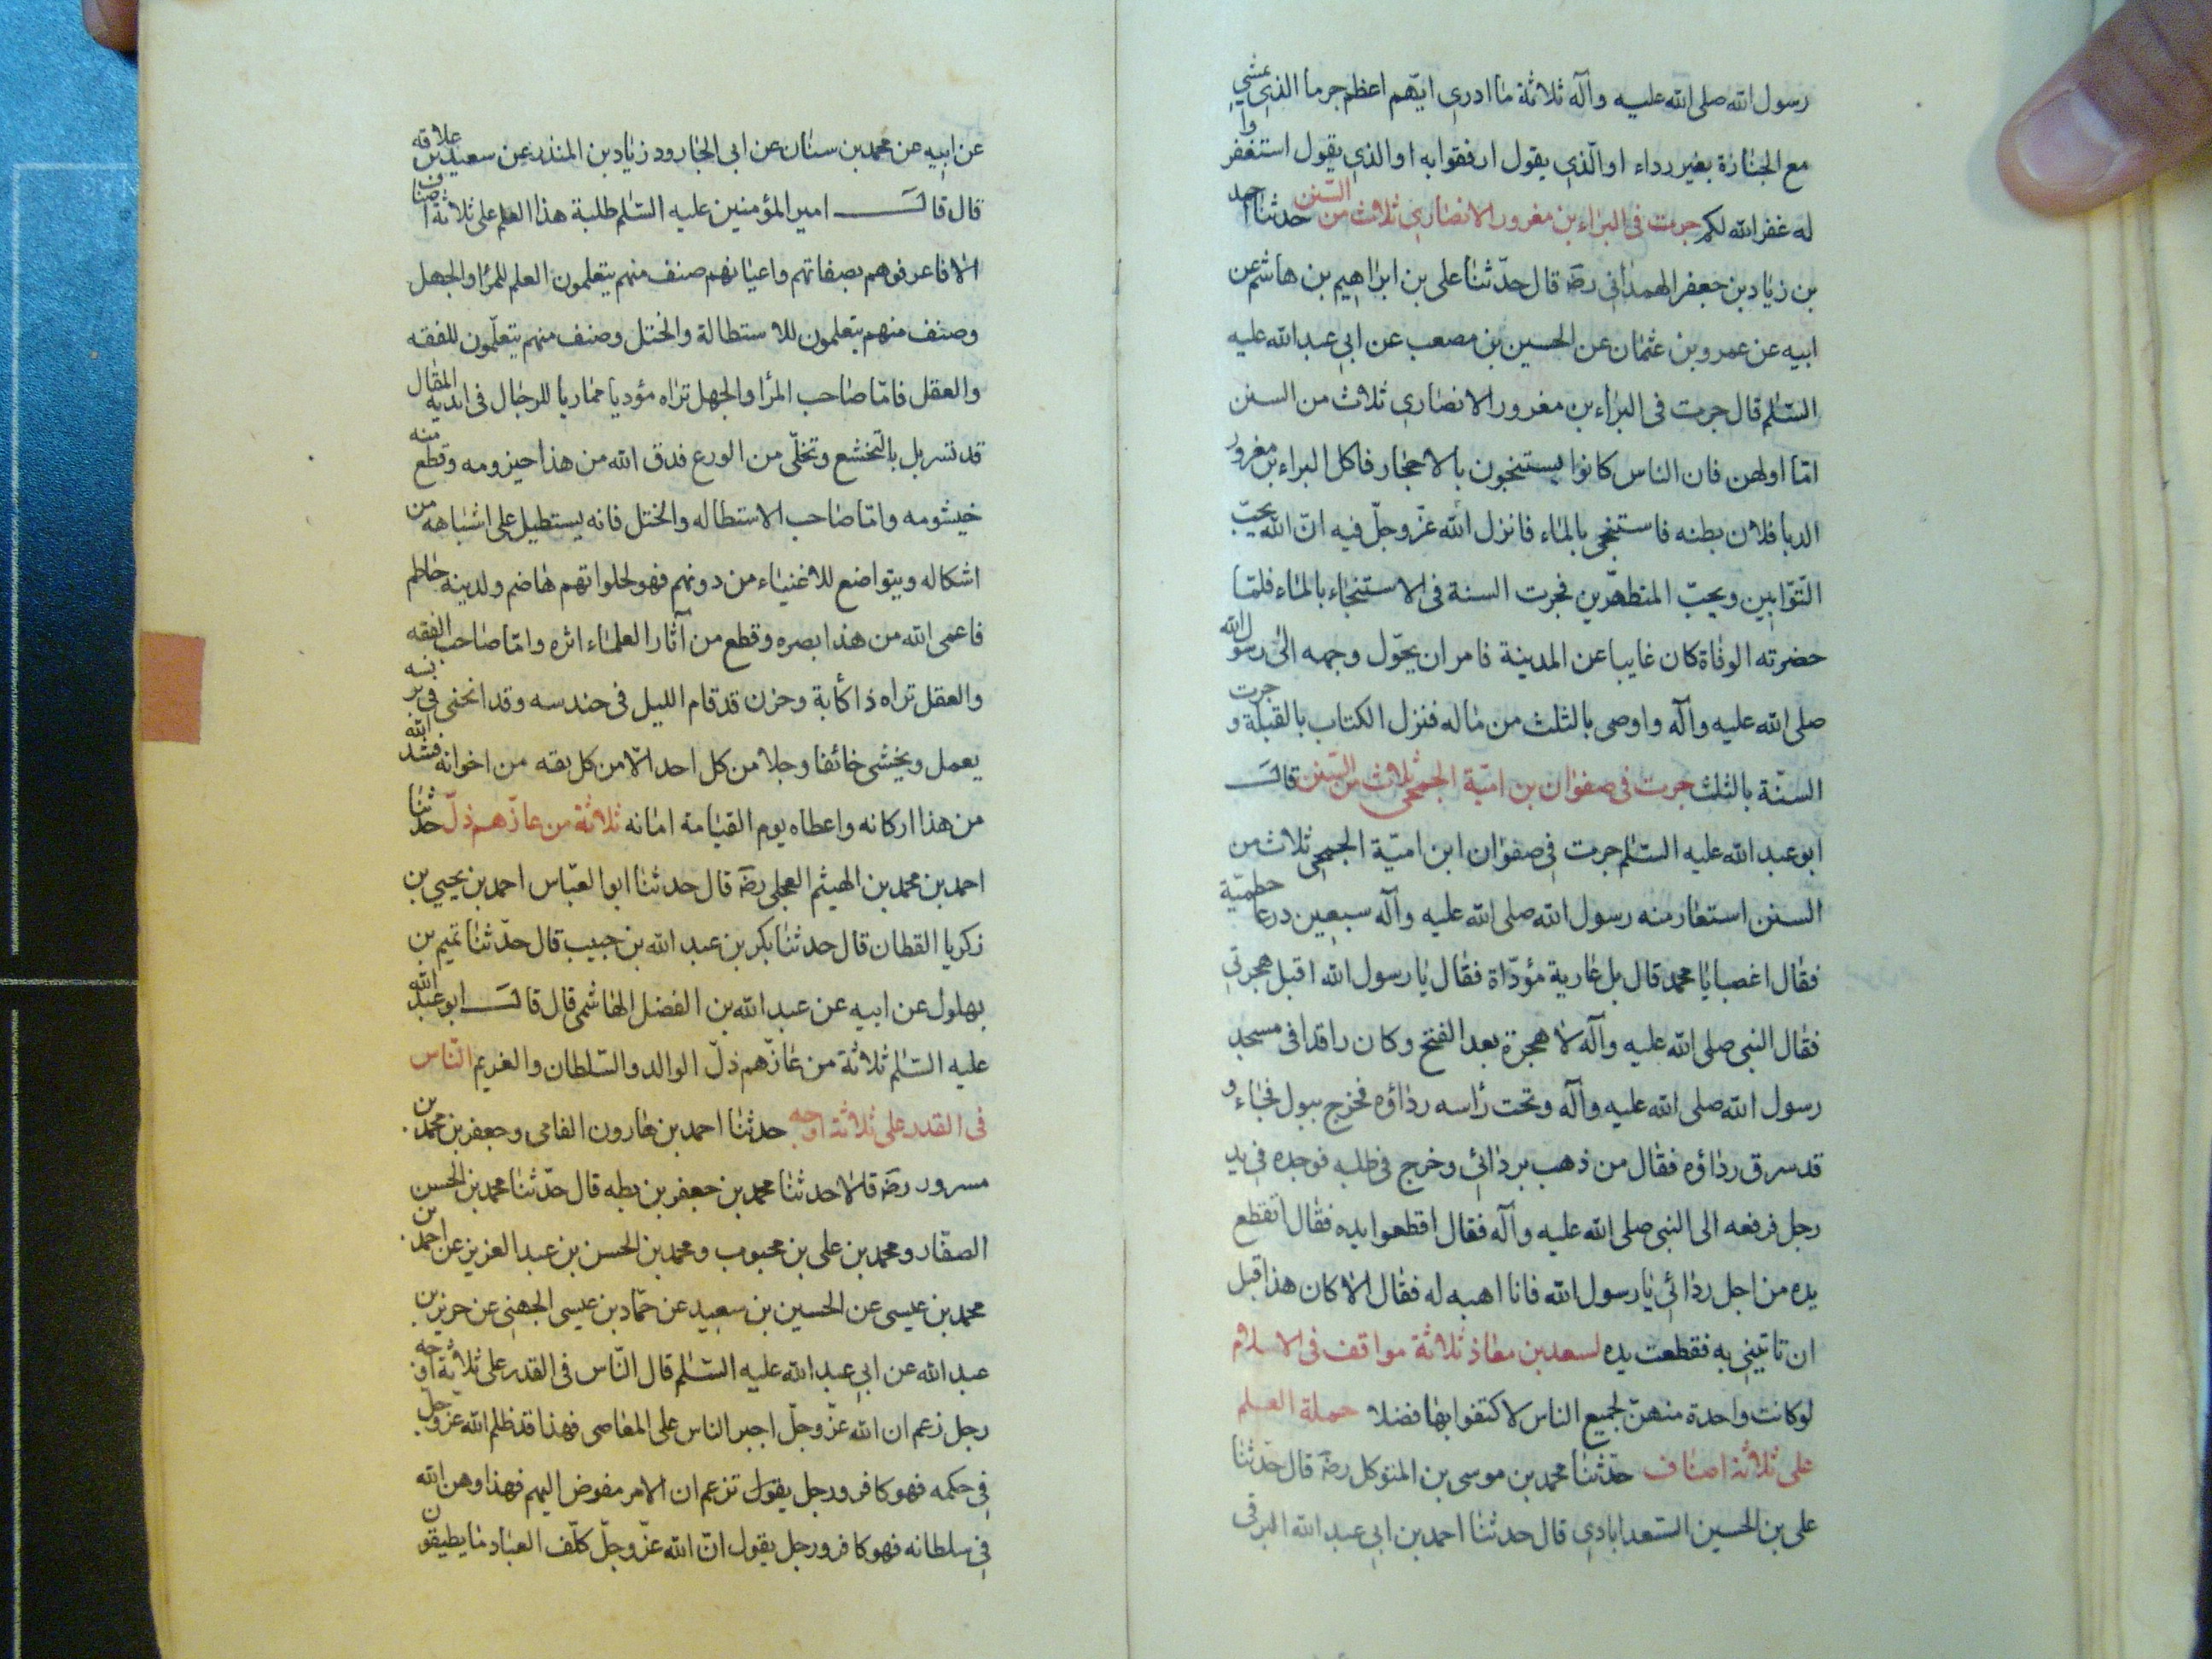 رسول الله صلى الله عليه وآله ثلاثة ما ادرى ايّهم اعظم جرما الذى يمشي
مع الجنازة بغير رداء او الّذي يقول ارفقوا به او الذي يقول استغفروا
له غفر الله لكم جرت فى البراء بن مغرور الانصاري ثلاث من السّنن حدثنا احمد
بن زياد بن جعفر الهمداني رضه قال حدّثنا على بن ابراهيم بن هاشم عن
ابيه عن عمرو بن عثمان عن الحسين بن مصعب عن ابي عبد الله عليه
السّلم قال جرت فى البراء بن مغرور الانصاري ثلاث من السنن
امّا اولهن فان الناس كانوا يستنجون بالاحجار فاكل البراء بن مغرور
الدبا فلان بطنه فاستنجى بالماء فانزل الله عزّ وجلّ فيه انّ الله يحبّ
التّوّابين ويحبّ المتطهّرين فجرت السنة فى الاستنجاء بالماء فلمّا
حضرته الوفاة كان غايبا عن المدينة فامر ان يحوّل وجهه الى رسول الله
صلى الله عليه وآله واوصى بالثلث من ماله فنزل الكتاب بالقبلة و جرت
السنّة بالثلث جرت فى صفوان بن اميّة الجمحي ثلاث من السّنن قال
ابو عبد الله عليه السّلم جرت في صفوان ابن اميّة الجمحي ثلاث من
السنن استعار منه رسول الله صلى الله عليه وآله سبعين درعا حطميّة
فقال اغصبا يا محمد قال بل عارية مؤدّاة فقال يا رسول الله اقبل هجرتي
فقال النبي صلى الله عليه وآله لا هجرة بعد الفتح وكان راقدا فى مسجد
رسول الله صلى الله عليه وآله وتحت رأسه رداؤه فخرج يبول فجاء و
قد سرق رداؤه فقال من ذهب بردائي وخرج فى طلبه فوجده في يد
رجل فرفعه الى النبي صلى الله عليه وآله فقال اقطعوا يده فقال اتقطع
يده من اجل ردائي يا رسول الله فانا اهبه له فقال الا كان هذا قبل
ان تاتيني به فقطعت يده لسعد بن معاذ ثلاثة مواقف فى الاسلام
لو كانت واحدة منهنّ لجميع الناس لاكتفوا بها فضلا حملة العلم
على ثلاثة اصناف حدّثنا محمد بن موسى بن المتوكل رضه قال حدّثنا
على بن الحسين السّعدابادي قال حدثنا احمد بن ابي عبد الله البرقي
عن ابيه عن محمد بن سنان عن ابى الجارود زياد بن المنذر عن سعيد بن علاقه
قال قال امير المؤمنين عليه السّلم طلبة هذا العلم على ثلاثة اصناف
الا فاعرفوهم بصفاتهم واعيانهم صنف منهم يتعلمون العلم للمرا والجهل
وصنف منهم يتعلمون للاستطالة والختل وصنف منهم يتعلّمون للفقه
والعقل فامّا صاحب المرا والجهل تراه مؤديا مماريا للرجال فى اندية المقال
قد تسربل بالتخشع وتخلّى من الورع فدق الله من هذا حيزومه وقطع منه
خيشومه وامّا صاحب الاستطاله والختل فانه يستطيل على اشباهه من
اشكاله ويتواضع للاغنياء من دونهم فهو لحلواتهم هاضم ولدينه حاطم
فاعمى الله من هذا بصره وقطع من آثار العلماء اثره وامّا صاحب الفقه
والعقل تراه ذا كأبة وحزن قد قام الليل فى حندسه وقد انحنى فى برنسه
يعمل ويخشى خائفا وجلا من كل احد الّا من كل بقه من اخوانه فشد الله
من هذا اركانه واعطاه يوم القيامة امانه ثلاثة من عازّهم ذلّ حدثنا
احمد بن محمد بن الهيثم العجلي رضه قال حدثنا ابو العبّاس احمد بن يحيى بن
زكريا القطان قال حدثنا بكر بن عبد الله بن حبيب قال حدّثنا تميم بن
بهلول عن ابيه عن عبد الله بن الفضل الهاشمي قال قال ابو عبد الله
عليه السّلم ثلاثة من عازّهم ذلّ الوالد والسّلطان والغريم النّاس
فى القدر على ثلاثة اوجه حدثنا احمد بن هارون الفامى وجعفر بن محمد بن
مسرور رضه قالا حدثنا محمد بن جعفر بن بطه قال حدّثنا محمد بن الحسن
الصفّار ومحمد بن على بن محبوب ومحمد بن الحسن بن عبد العزيز عن احمد بن
محمد بن عيسى عن الحسين بن سعيد عن حمّاد بن عيسى الجهني عن حريز بن
عبد الله عن ابي عبد الله عليه السّلم قال النّاس فى القدر على ثلاثة اوجه
رجل زعم ان الله عزّ وجلّ اجبر الناس على المعاصى فهذا قد ظلم الله عزّ وجلّ
في حكمه فهو كافر ورجل يقول تزعم ان الامر مفوض اليهم فهذا وهن الله
في سلطانه فهو كافر ورجل يقول انّ الله عزّ وجلّ كلّف العباد ما يطيقون